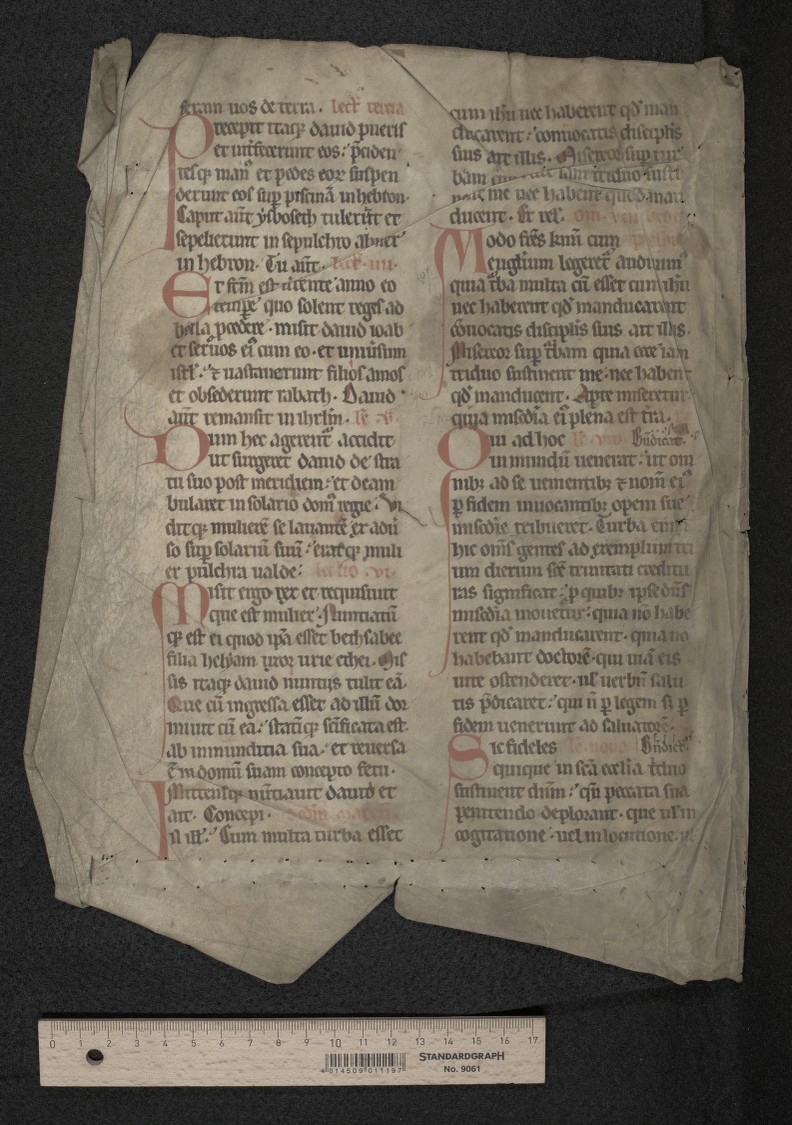 feram uos de terra. lect̄ tercia
Precepit itaq; dauid pueris
et interfecerunt eos: p̄ciden
tesq; man᷒ et pedes eoꝝ suspen
derunt eos sup piscinā in hebron.
Caput aūt ysboseth tulerūt et
sepelierunt in sepulchro abner
in hebron. Tu aūt. lect̄ .iiii.
Et fc̄m est uertente anno eo
tempr̄e quo solent reges ad
bella p̄cedere. misit dauid ioab
et seruos ei᷒ cum eo. et uniūsum
isrl̄. ⁊ uastauerunt filios amos
et obsederunt rabath. Dauid
aūt remansit in ihrlm̄. lc̄ v.
Dum hec agerent᷒ accidit
ut surgeret dauid de stra
tu suo post meridiem: et deam
bularet in solario dom᷒ regie. Vi
ditq; mulierē se lauantē ex adū
so sup solariū suū: eratq; muli
er pulchra ualde: lectio .vi.
Misit ergo rex et requisiuit
que est mulier. Nuntiatū
q; est ei quod ip̄a esset bethsabee
filia helyam uxor urie ethei. Mis
sis itaq; dauid nuntijs tulit eā.
Que cū ingressa esset ad illū dor
miuit cū ea: statīq; scīficata est
ab inmunditia sua. et reuersa
ē in domū suam concepto fetu.
Mittensq; nūtiauit dauid et
ait. Concepi.
In ill̄. Cum multa turba esset
cum ih̄u nec haberent qd̄ man
ducarent: conuocatis disciplis
suis ait illis. Misereor sup tur
bam
me nec habent quod man
ducent. Et rel̄.
Modo fr̄es km̄i cum
euḡlium legeret᷒ audiuim᷒
quia t̄ba multa cū esset cum ih̄u
nec haberent qd̄ manducarent
cōuocatis disciplis suis ait illis.
Misereor sup t̄bam quia ecce iam
triduo sustinent me. nec habent
qd̄ manducent. Aperte miseretur
quia misedīa ei᷒ plena est t̄ra.
Qui ad hoc
in mundū uenerat. ut om
nib; ad se uenientib; ⁊ nom̄ ei᷒
p fidem inuocantib; opem sue
misedīe tribueret. Turba
hic om̄s gentes ad exemplum
um dierum sc̄e trinitati creditu
ras significat: p quib; ipse dn̄s
misedīa mouetur: quia nō habe
rent qd̄ manducarent. quia nō
habebant doctorē. qui uiā eis
uite ostenderet. ul᷒ uerbū salu
tis p̄dicaret: qui n̄ p legem s; p
fidem uenerunt ad saluatorē.
Sic fideles lc̄ nona
quique in sc̄a ecc̄lia t̄duo
sustinent dn̄m: qn̄ peccata sua
penitendo deplorant. que ul᷒ in
cogitatione. uel in locutione.
0 1 2 3 4 5 6 7 8 9 10 11 12 13 14 15 16 17
STANDARDGRAPH
No. 9061
4 014509 011197